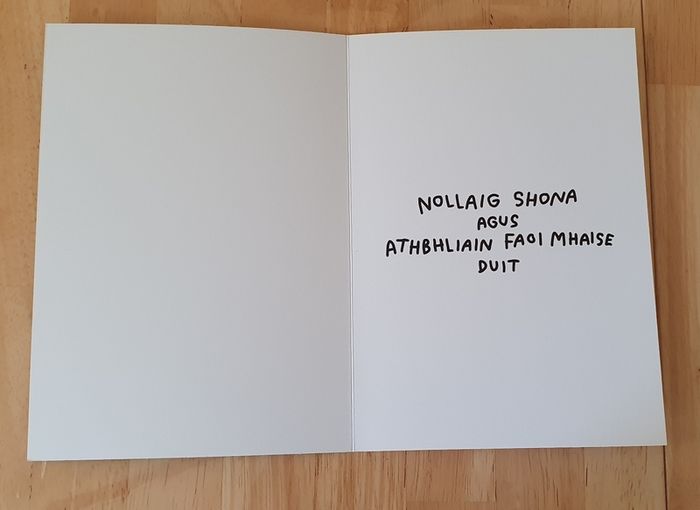 NOLLAIG SHONA
AGUS
ATHBHLIAIN FAOI MHAISE
DUIT